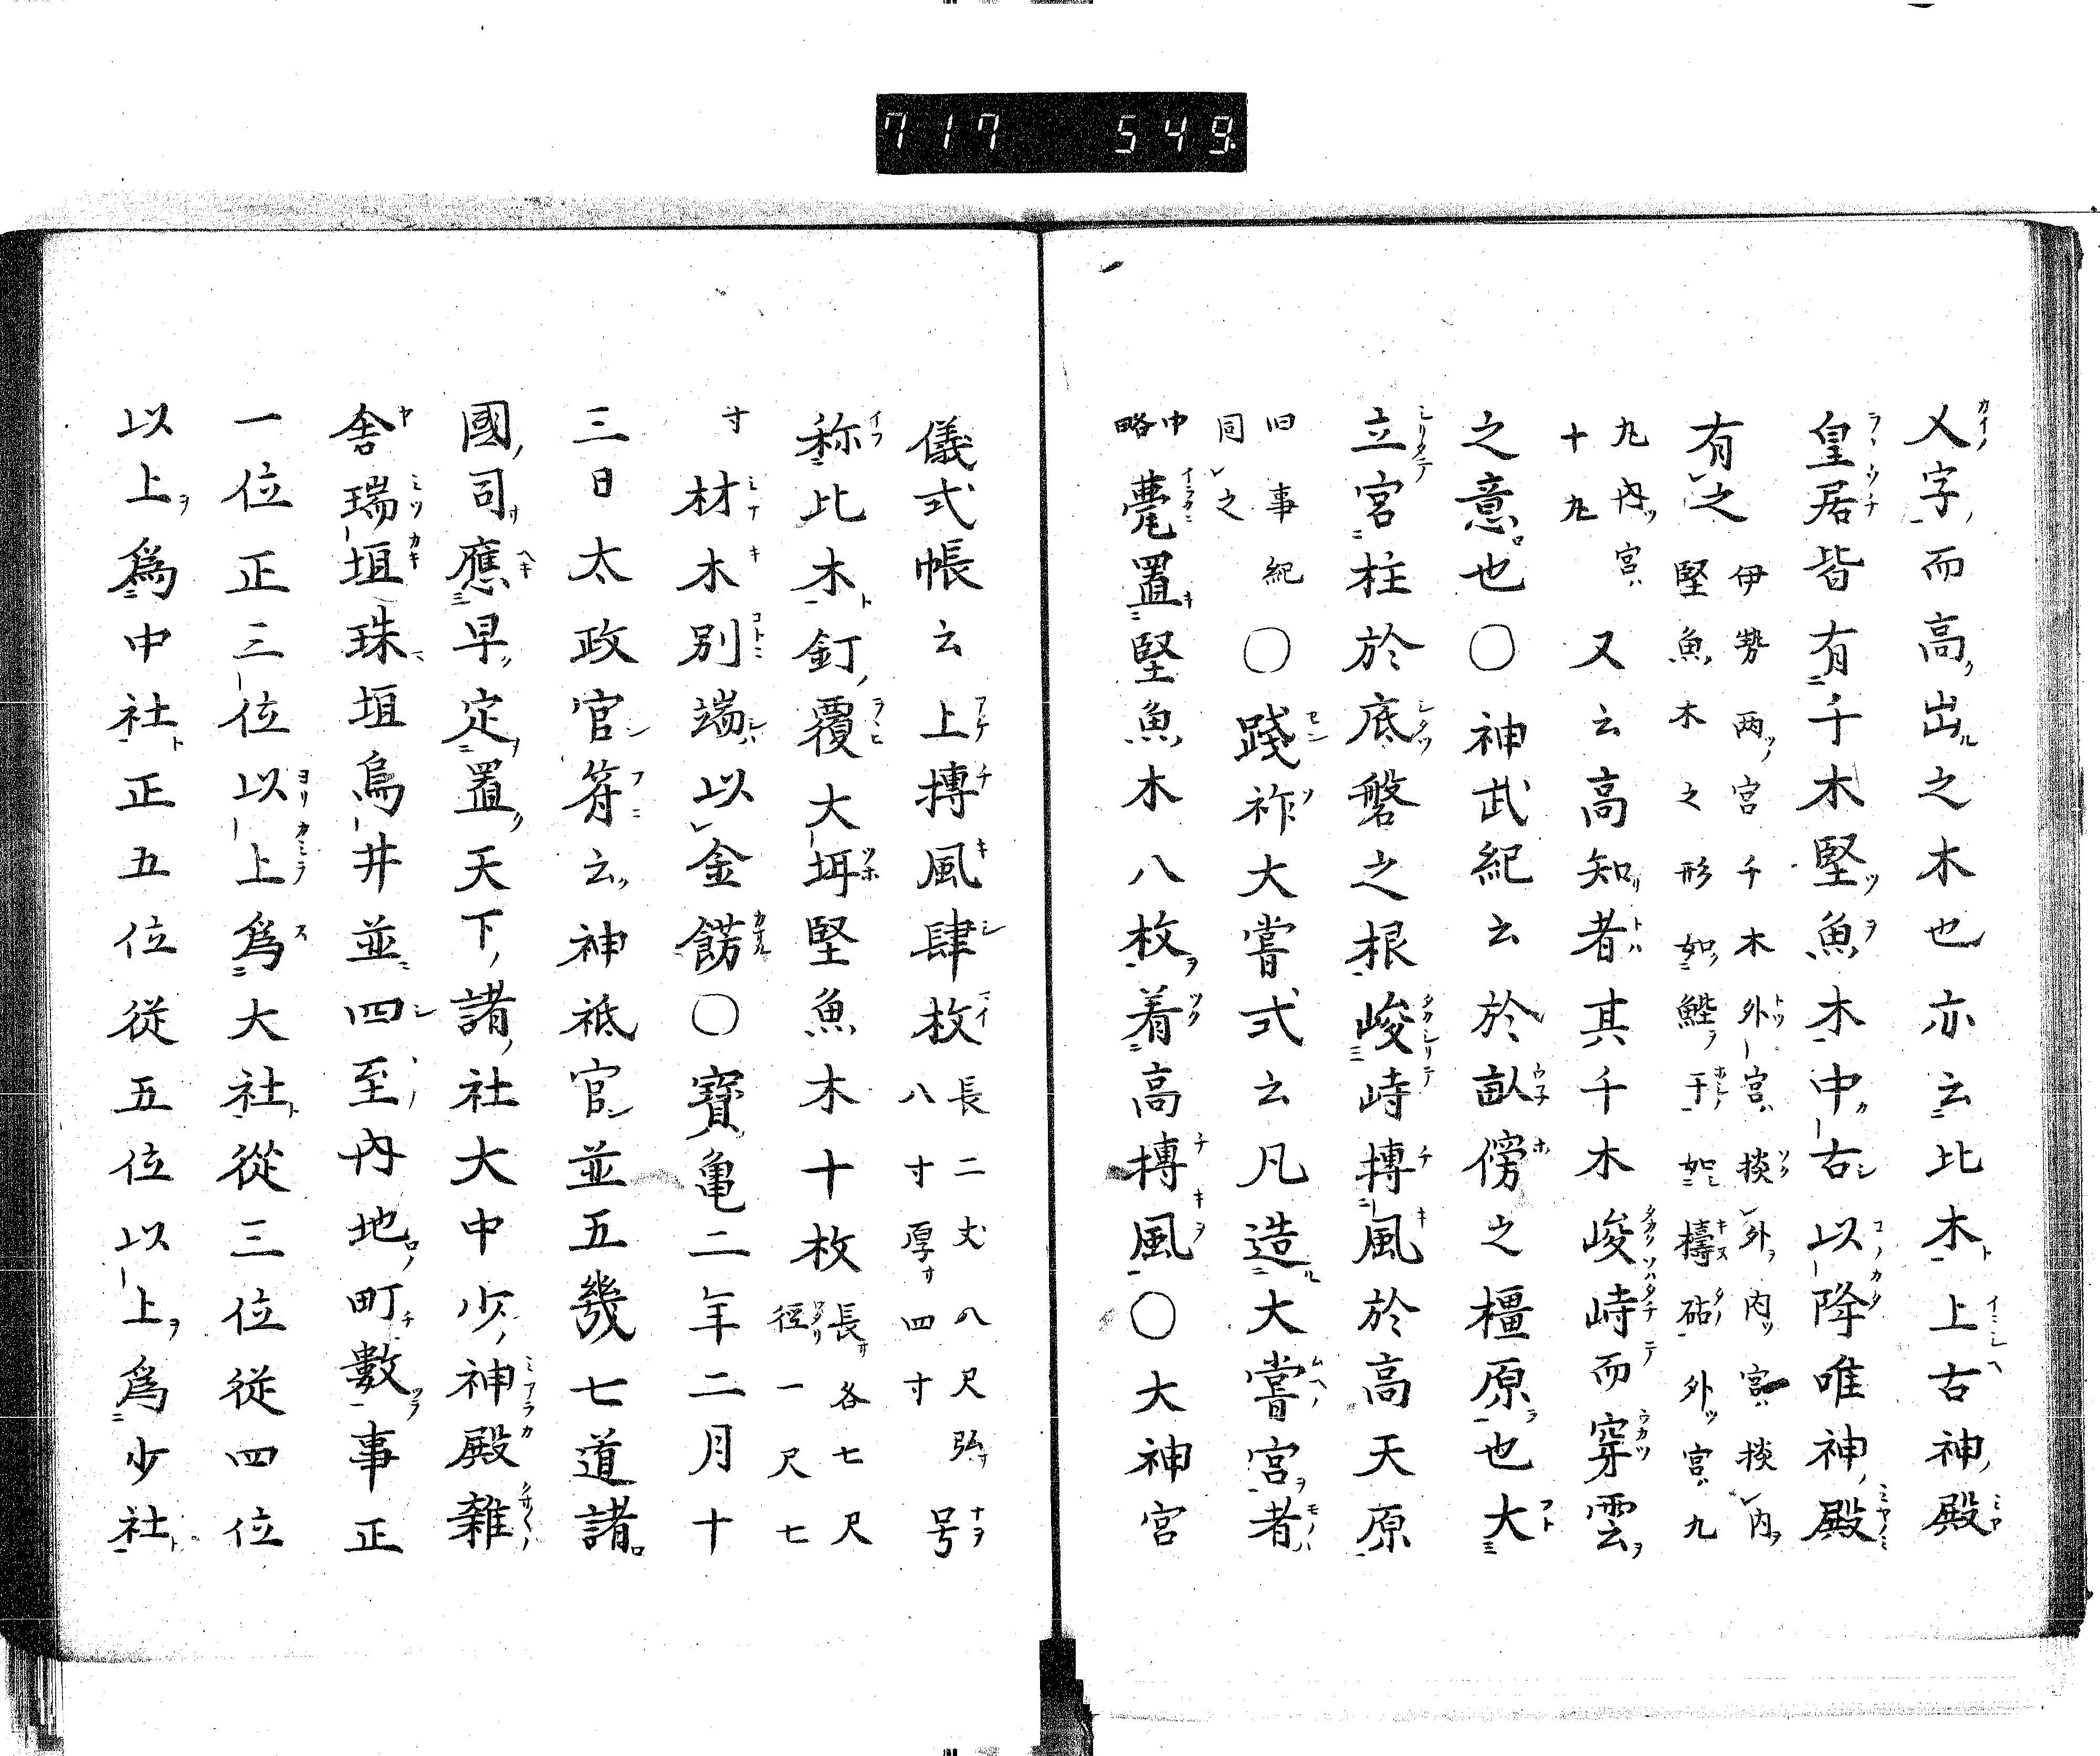 717 549
乂字而高出之木也亦云比木上古神殿
皇居皆有千木堅魚木中古以降唯神殿
有之伊勢両宮千木外宮掞外内宮掞内
堅魚木之形如鰹于如擣砧外宮九
九内宮
十九又云高知者其千木峻峙而穿雲
之意也〇神武紀云於畝傍之橿原也大
立宮柱於底磐之根峻峙摶風於高天原
旧事紀
同之〇踐祚大嘗式云凡造大嘗宮者
中略甍置堅魚木八枚着高摶風〇大神宮
儀式帳云上摶風肆枚長二丈八尺弘
八寸厚四寸号
称比木釘覆大坩堅魚木十枚長各七尺
徑一尺七
寸材木別端以金餝〇寳亀二年二月十
三日太政官符云神祇官並五畿七道諸
國司應早定置天下諸社大中少神殿雜
舎瑞垣珠垣鳥井並四至内地町數事正
一位正三位以上爲大社從三位従四位
以上爲中社正五位従五位以上爲少社